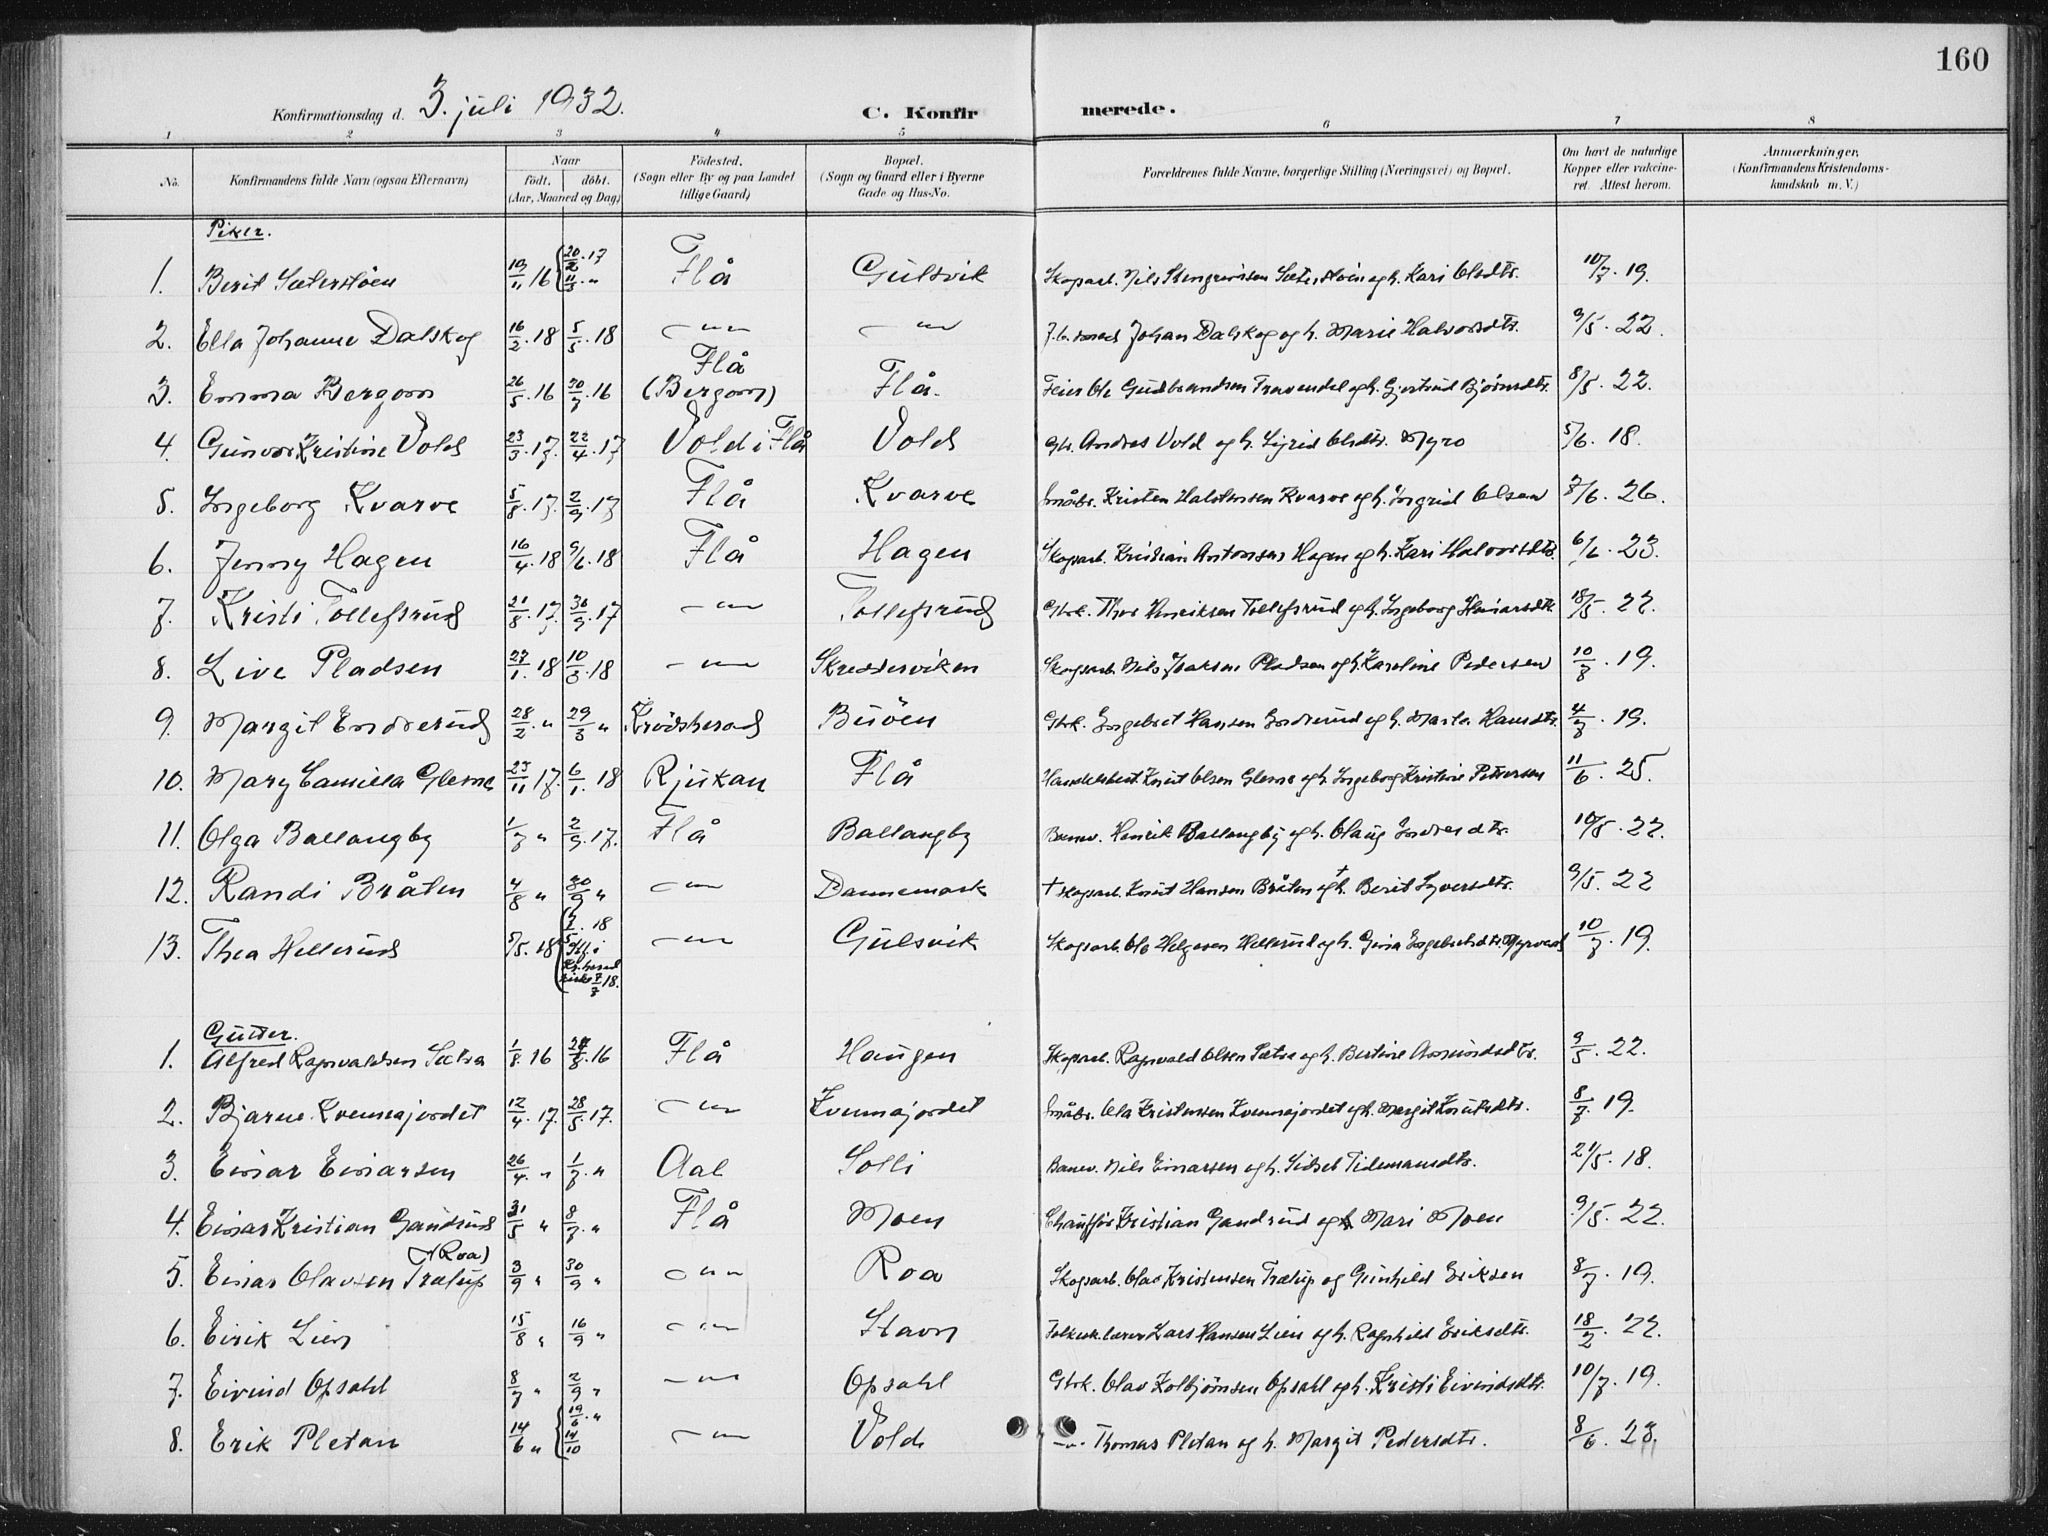 160
Konfirmationsdag d. 3. juli 1932. C. Konfirmerede.
1 2 3 4 5 6 7 8
No. Konfirmandens fulde Navn (ogsaa Efternavn) Naar født. døbt. (Aar, Maaned og Dag) Fødested. (Sogn eller By og paa Landet tillige Gaard) Bopæl. (Sogn og Gaard eller i Byerne Gade og Hus-No. Forældrenes fulde Navne, borgerlige Stilling (Næringsvei) og Bopæl. Om havt de naturlige Kopper eller vakcineret. Attest herom. Anmærkninger. (Konfirmandens Kristendomskundskab m. V.)
Piker.
1. Berit Sæterstøen 19/11 16 20/2 . 17 11/3 . " Flå Gulsvik Skogsarb. Nils Stengrimsen Sæterstøen og h. Kari Olsdtr. 10/7 . 19.
2. Ella Johanne Dalskog 16/2 . 18 5/5 . 18 — " — — " — Johan Dalskog og h. Marie Halvorsdtr. 9/5 . 22.
3. Emma Bergom 26/5 . 16 30/7 . 16 Flå (Bergom) Flå. Feier Ole Gudbrandsen Travendal og h. Gjertrud Bjørnsdtr. 8/5 . 22.
4. Gunvor Kristine Vold 23/3 . 17. 22/4 . 17 Vold i Flå Vold Gbr. Andres Vold og h. Sigrid Olsdtr. Myro 5/6 . 18.
5. Ingeborg Kvarve 5/8 . 17. 2/9 . 17 Flå Kvarve Småbr. Kristen Halstensen Kvarve og h. Ingrid Olsen 7/6 . 26.
6. Jenny Hagen 16/4 . 18 9/6 . 18 Flå Hagen Skogsarb. Kristian Antonsen Hagen og h. Kari Halvorsdtr. 6/6 . 23.
7. Kristi Tollefsrud 21/8 . 17. 30/9 . 17 — " — Tollefsrud Gbrk. Thor Henriksen Tollefsrud og h. Ingeborg Heinarsdtr. 18/5 . 22.
8. Live Pladsen 27/1 . 18 10/3 . 18 — " — Skreddersviken Skogsarb. Nils Isaksen Pladsen og h. Karoline Pedersen 10/7 . 19.
9. Margit Endrerud 28/2 . " 29/3 " Krødsherad Buøen Gbrk. Ingebret Hansen Endrerud og h. Marta Hansdtr. 4/7 . 19.
10. Mary Camilla Glesne 23/11 17. 6/1 . 18 Rjukan Flå Handelsbest. Knut Olsen Glesne og h. Ingeborg Kristine Pettersen 11/6 . 25.
11. Olga Ballangby 1/7 " 2/9 . 17. Flå Ballangby Banev. Henrik Ballangby og h. Olaug Endresdtr. 10/5 . 22.
12. Randi Bråten 4/8 " 30/9 " — " — Dannemark † Skogsarb. Knut Hansen Bråten og † h. Berit Syversdtr. 9/5 . 22
13. Thea Hellerud 5/5 . 18 — " — Gulsvik Skogsarb. Ole Helgesen Hellerud og h. Gina Ingebretsdtr. Myrvold 10/7 . 19.
Gutter.
1. Alfred Ragnvaldsen Sætra 1/8 . 16 27/8 . 16 Flå Haugen Skogsarb. Ragnvald Olsen Sætra og h. Bertine Asmundsdtr. 9/5 . 22.
2. Bjarne Kvennejordet 12/4 . 17. 28/5 . 17. — " — Kvennejordet Småbr. Ola Kristensen Kvennejordet og h. Margit Knutsdtr. 8/7 . 19.
3. Einar Einarsen 26/4 . " 1/7 . " Aal Solli Banev. Nils Einarsen og h. Sidsel Tidemansdtr. 21/5 . 18.
4. Einar Kristian Gandrud 31/5 " 8/7 . " Flå Moen Chauffør Kristian Gandrud og h. Mari Moen 9/5 . 22.
5. Einar Olavsen Trætup (Roa) 3/9 " 30/9 " — " — Roa Skogsarb. Olav Kristensen Trætup og Gunhild Eriksen 8/7 . 19.
6. Eirik Lien 15/8 " 16/9 " — " — Stavn Folkesk.lærer Lars Hansen Lien og h. Ragnhild Eriksdtr. 18/2 . 22.
7. Eivind Opsahl 8/7 " 2/9 " — " — Opsahl Gbrk. Olav Kolbjørnsen Opsahl og h. Kristi Eivindsdtr. 10/7 . 19.
8. Erik Pletan 14/6 " 19/6 . " 14/10 — " — Vold — " — Thomas Pletan og h. Margit Pedersdtr. 8/6 . 23.